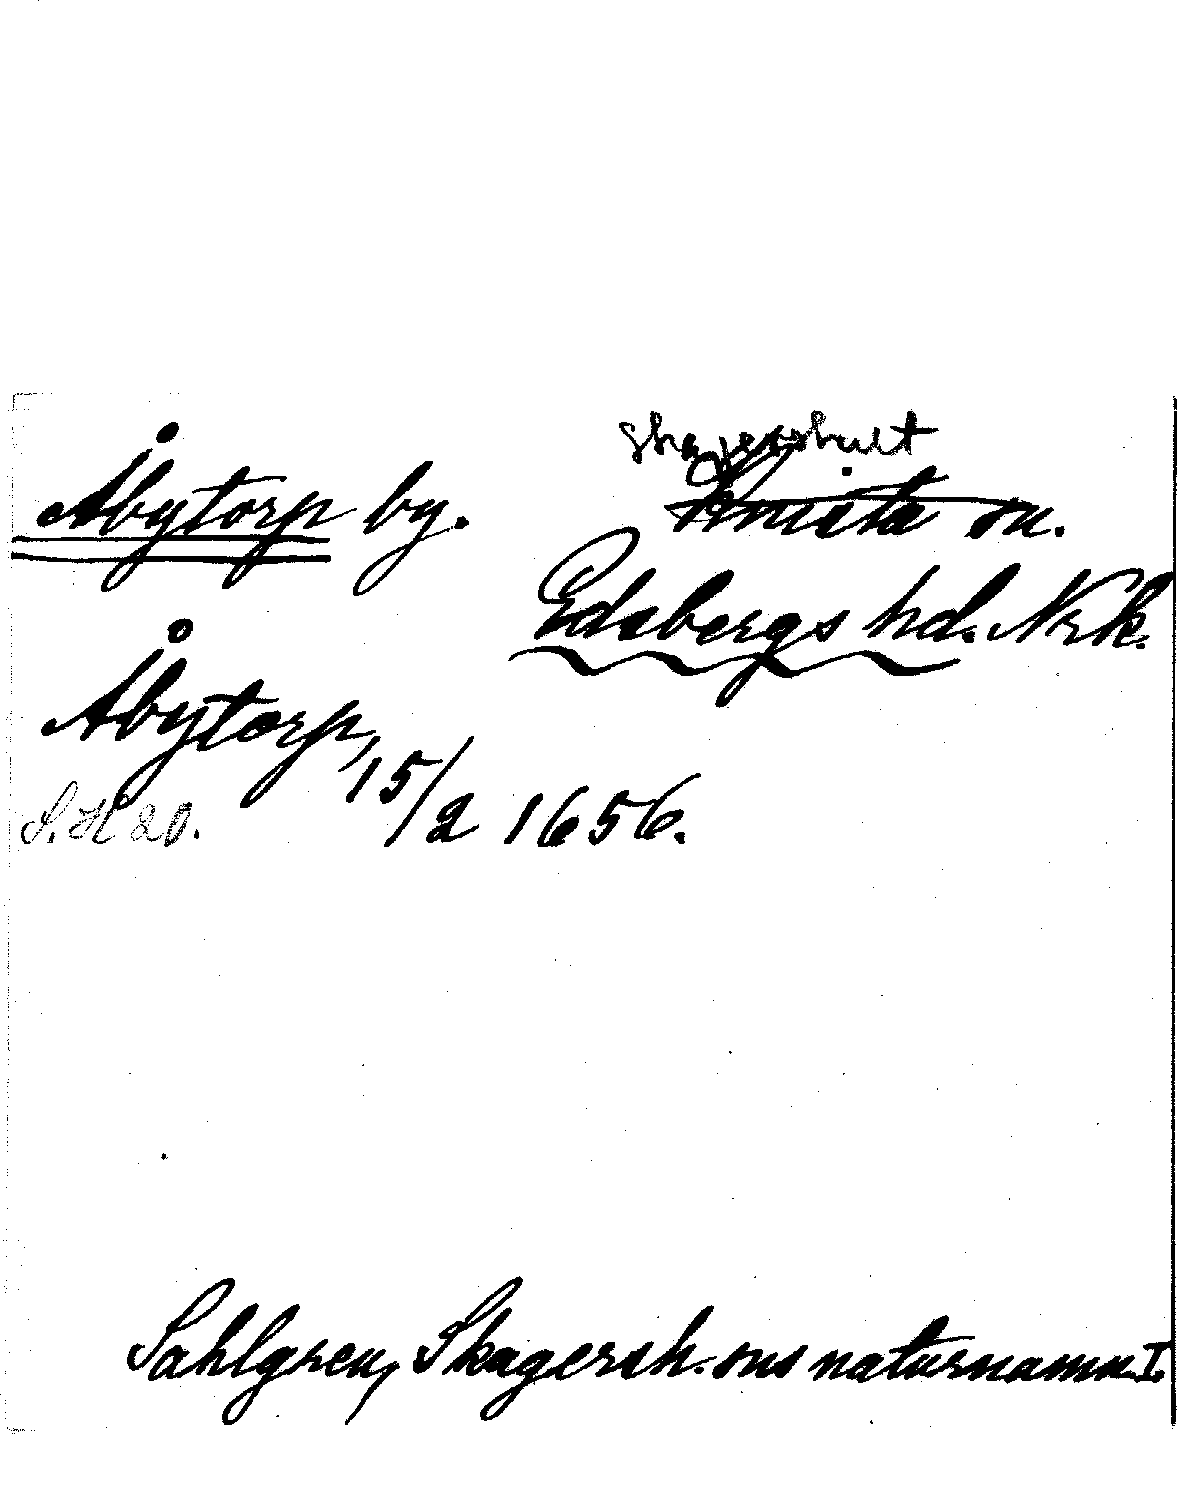 Skagershult
Åbytorp by. Knista sn.
Edsbergs hd. Nrk.
Åbytorp, 15/2 1656.
S. H 20.
Sahlgren, Skagersh. sns naturnamn I.